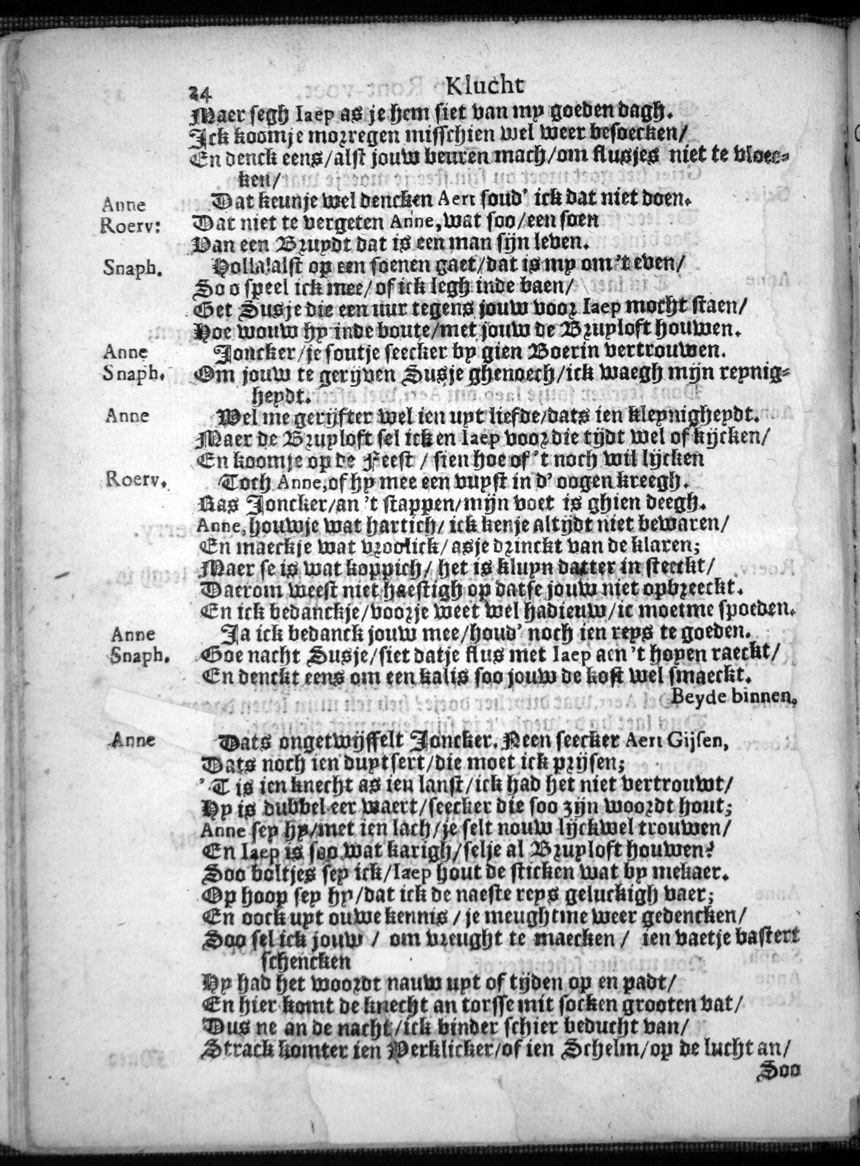 24 Klucht
Maer segh Iaep as je hem siet van my goeden dagh.
Ick koomje morregen misschien wel weer besoecken/
En denck eens/alst jouw beuren mach/om flusjes niet te vloec-
ken/
Anne Dat keunje wel dencken Aert soud' ick dat niet doen.
Roerv: Dat niet te vergeten Anne, wat soo/een soen
Van een Bruydt dat is een man sijn leven.
Snaph. Holla!alst op een soenen gaet/dat is my om 't even/
Soo speel ick mee/of ick legh inde baen/
Get Susje die een uur tegens jouw voor Iaep mocht staen/
Hoe wouw hy inde boute/met jouw de Bruyloft houwen.
Anne Joncker/je soutje seecker by gien Boerin vertrouwen.
Snaph. Om jouw te gerijven Susje ghenoech/ick waegh mijn reynig-
heydt.
Anne Wel me gerijfter wel ien uyt liefde/dats ien kleynigheydt.
Maer de Bruyloft sel ick en Iaep voor die tijdt wel of kijcken/
En koomje op de Feest / sien hoe of 't noch wil lijcken
Roerv. Toch Anne, of hy mee een vuyst in d' oogen kreegh.
Ras Joncker/an 't stappen/mijn voet is ghien deegh.
Anne, houwje wat hartich/ ick kenje altijdt niet bewaren/
En maeckje wat vrolick/asje drinckt van de klaren;
Maer se is wat koppich/ het is kluyn datter in steeckt/
Daerom weest niet haestigh op datse jouw niet opbreeckt.
En ick bedanckje/voorje weet wel hadieuw/ic moetme spoeden.
Anne Ja ick bedanck jouw mee/houd' noch ien reys te goeden.
Snaph. Goe nacht Susje/siet datje flus met Iaep aen 't hopen raeckt/
En denckt eens om een kalis soo jouw de kost wel smaeckt.
Beyde binnen.
Anne Dats ongetwijffelt Joncker. Neen seecker Aert Gijsen,
Dats noch ien duytsert/die moet ick prijsen;
'T is ien knecht as ien lanst/ick had het niet vertrouwt/
Hy is dubbel eer waert/seecker die soo zijn woordt hout;
Anne sey hy/met ien lach/je selt nouw lijckwel trouwen/
En Iaep is soo wat karigh/selje al Bruyloft houwen?
Soo boltjes sey ick/Iaep hout de sticken wat by mekaer.
Op hoop sey hy/dat ick de naeste reys geluckigh vaer;
En oock uyt ouwe kennis / je meughtme weer gedencken/
Soo sel ick jouw / om vreught te maecken / ien vaetje bastert
schencken
Hy had het woordt nauw uyt of tijden op en padt/
En hier komt de knecht an torsse mit socken grooten vat/
Dus ne an de nacht/ick binder schier beducht van/
Strack komter ien Verklicker/of ien Schelm/op de lucht an/
Soo